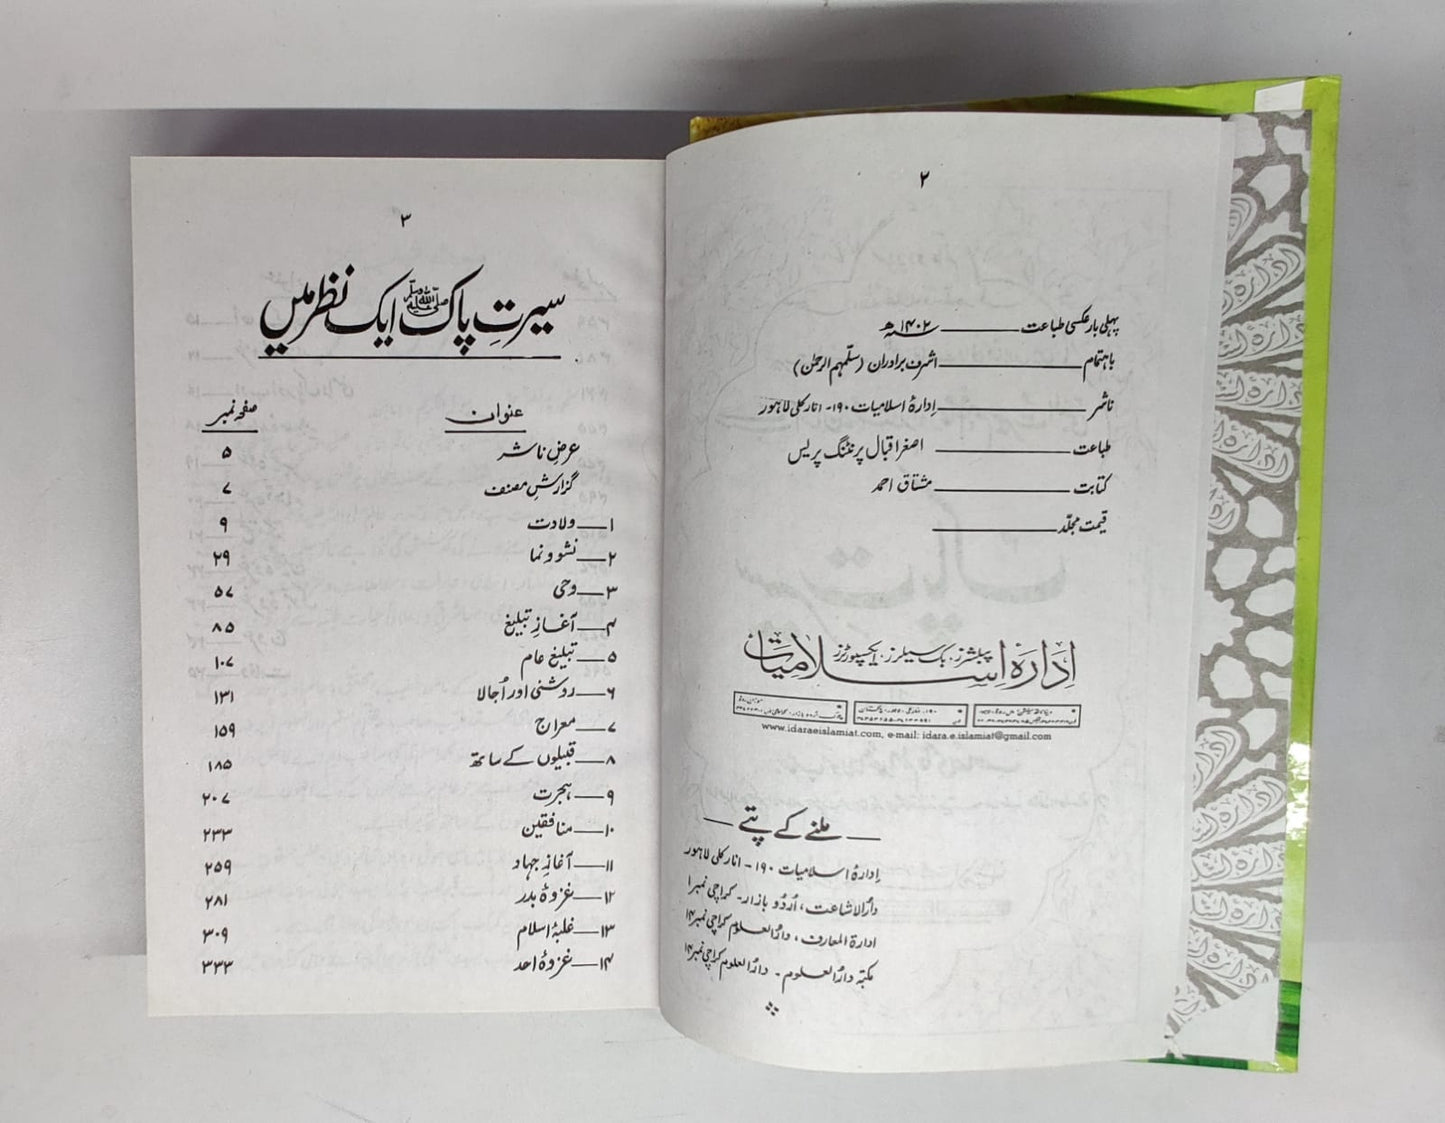 ۲
پہلی بار عکسی طباعت ــــــ ۱۴۰۲ھ
باہتمام ــــــ اشرف برادران (سلّمہم الرحمٰن)
ناشر ــــــ اِدارۂ اسلامیات ۱۹۰۔ انارکلی لاہور
طباعت ــــــ اصغر اقبال پرنٹنگ پریس
کتابت ــــــ مشتاق احمد
قیمت مجلّد ــــــ
اِدارۂ اسلامیات
پبلشرز، بک سیلرز، ایکسپورٹرز
www.idaraeislamiat.com, e-mail: idara.e.islamiat@gmail.com
— ملنے کے پتے —
اِدارۂ اسلامیات ۱۹۰ ۔ انارکلی لاہور
دارُالاشاعت، اُردُو بازار۔ کراچی نمبر۱
ادارۃ المعارف، دارُالعلوم کراچی نمبر۱۴
مکتبہ دارُالعلوم ۔ دارُالعلوم کراچی نمبر۱۴
۳
سیرتِ پاک ﷺ ایک نظر میں
عنوان صفحہ نمبر
عرضِ ناشر ۵
گزارشِ مصنف ۷
۱ــ ولادت ۹
۲ــ نشوونما ۲۹
۳ــ وحی ۵۷
۴ــ آغازِ تبلیغ ۸۵
۵ــ تبلیغِ عام ۱۰۷
۶ــ روشنی اور اُجالا ۱۳۱
۷ــ معراج ۱۵۹
۸ــ قبیلوں کے ساتھ ۱۸۵
۹ــ ہجرت ۲۰۷
۱۰ــ منافقین ۲۳۳
۱۱ــ آغازِ جہاد ۲۵۹
۱۲ــ غزوۂ بدر ۲۸۱
۱۳ــ غلبۂ اسلام ۳۰۹
۱۴ــ غزوۂ احد ۳۳۳